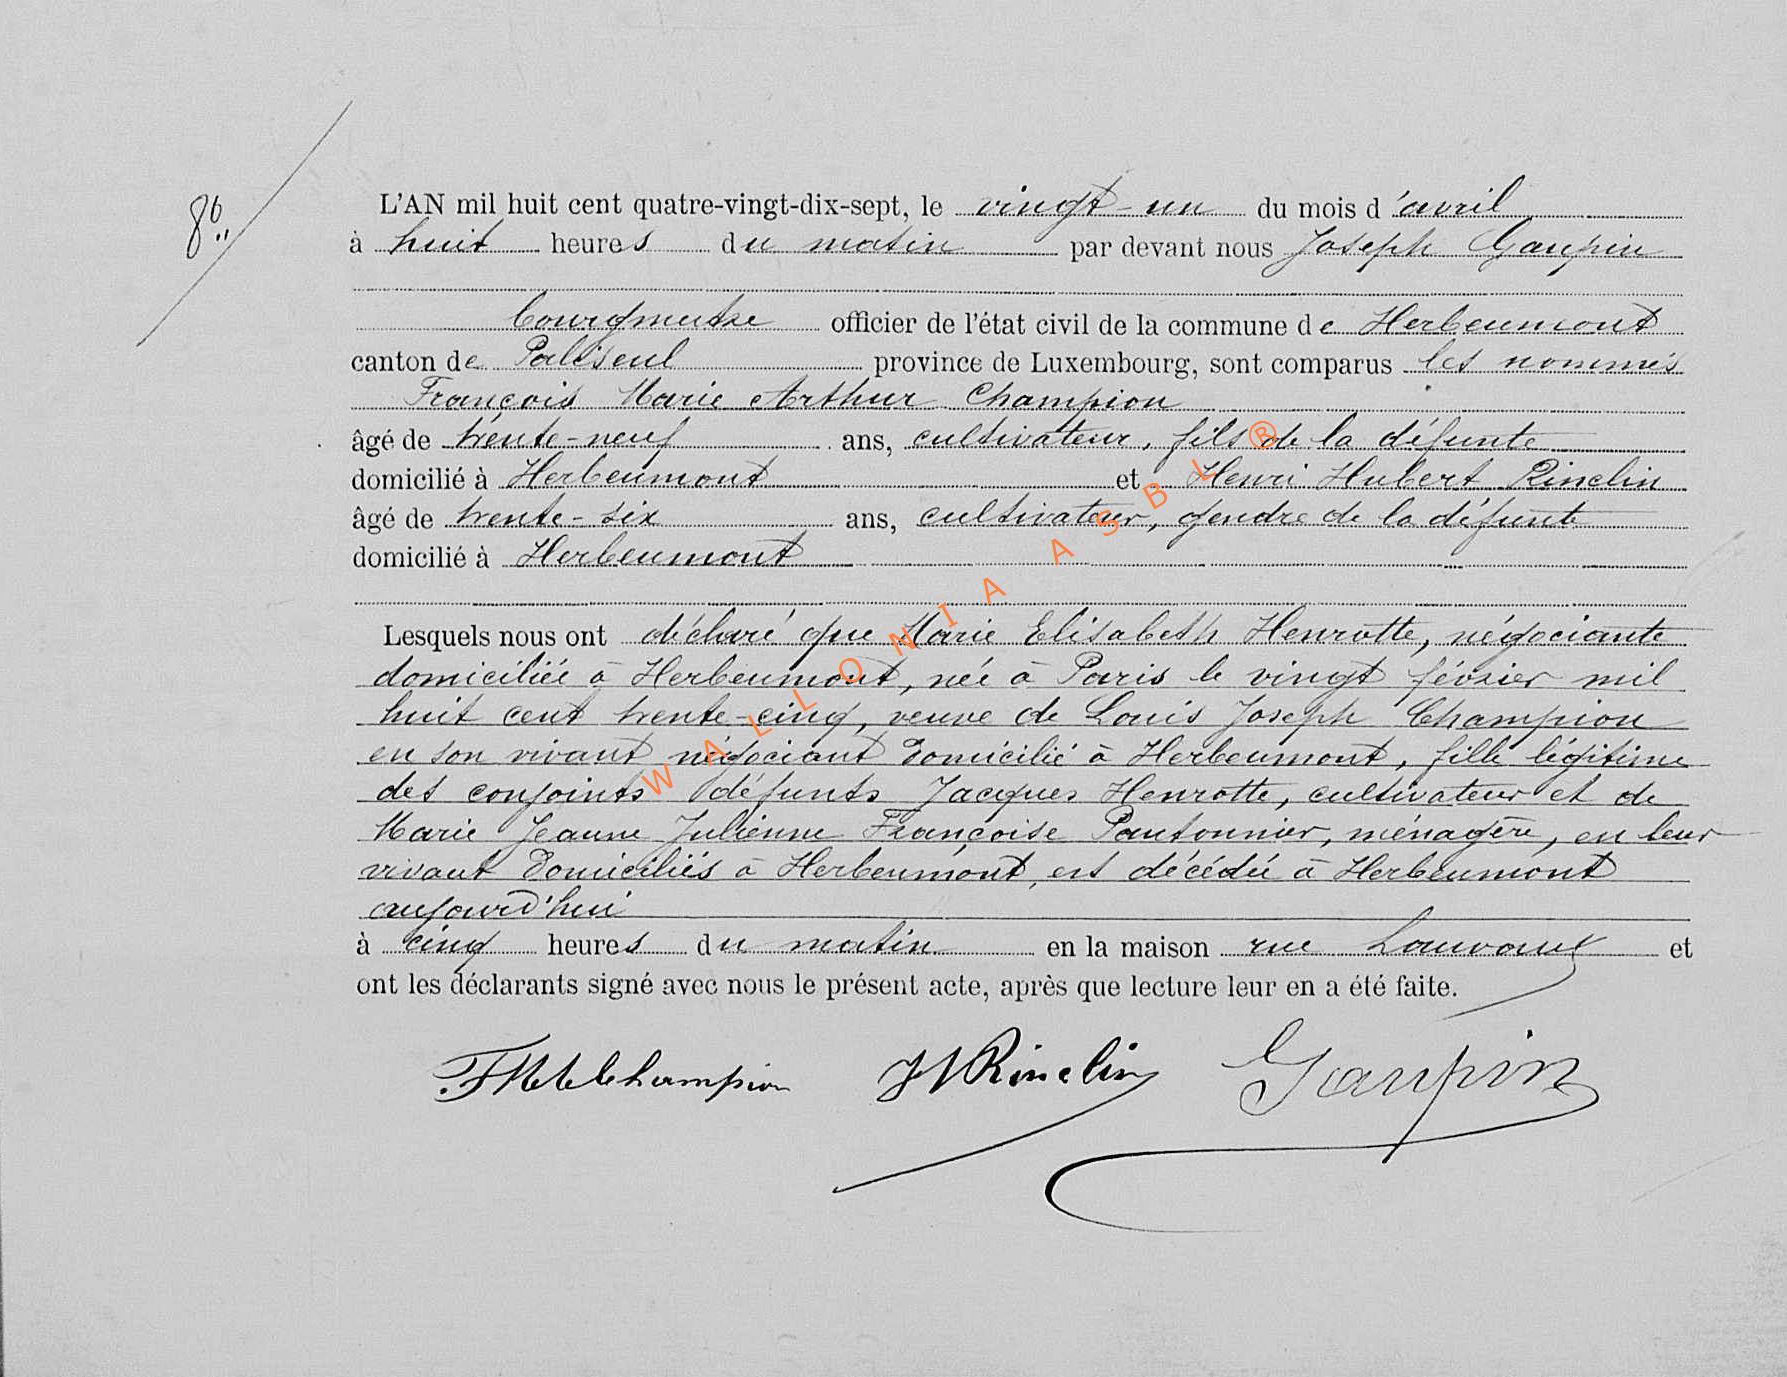 8º
L'AN mil huit cent quatre-vingt-dix-sept, le vingt-un du mois d'avril
à huit heures du matin par devant nous Joseph Gaupin
bourgmestre officier de l'état civil de la commune de Herbeumont
canton de Paliseul province de Luxembourg, sont comparus les nommés
François Marie Arthur Champion
âgé de trente-neuf ans, cultivateur, fils de la défunte
domicilié à Herbeumont et Henri Hubert Rinclin
âgé de trente-six ans, cultivateur, gendre de la défunte
domicilié à Herbeumont
Lesquels nous ont déclaré que Marie Elisabeth Henrotte, négociante
domiciliée à Herbeumont, née à Paris le vingt février mil
huit cent trente-cinq, veuve de Louis Joseph Champion
en son vivant négociant domicilié à Herbeumont, fille légitime
des conjoints défunts Jacques Henrotte, cultivateur et de
Marie Jeanne Julienne Françoise Pantonnier, ménagère, en leur
vivant domiciliés à Herbeumont, est décédée à Herbeumont
aujourd'hui
à cinq heures du matin en la maison rue Lauvaux et
ont les déclarants signé avec nous le présent acte, après que lecture leur en a été faite.
Champion HRinclin Gaupin
WALLONIA ASBL ®